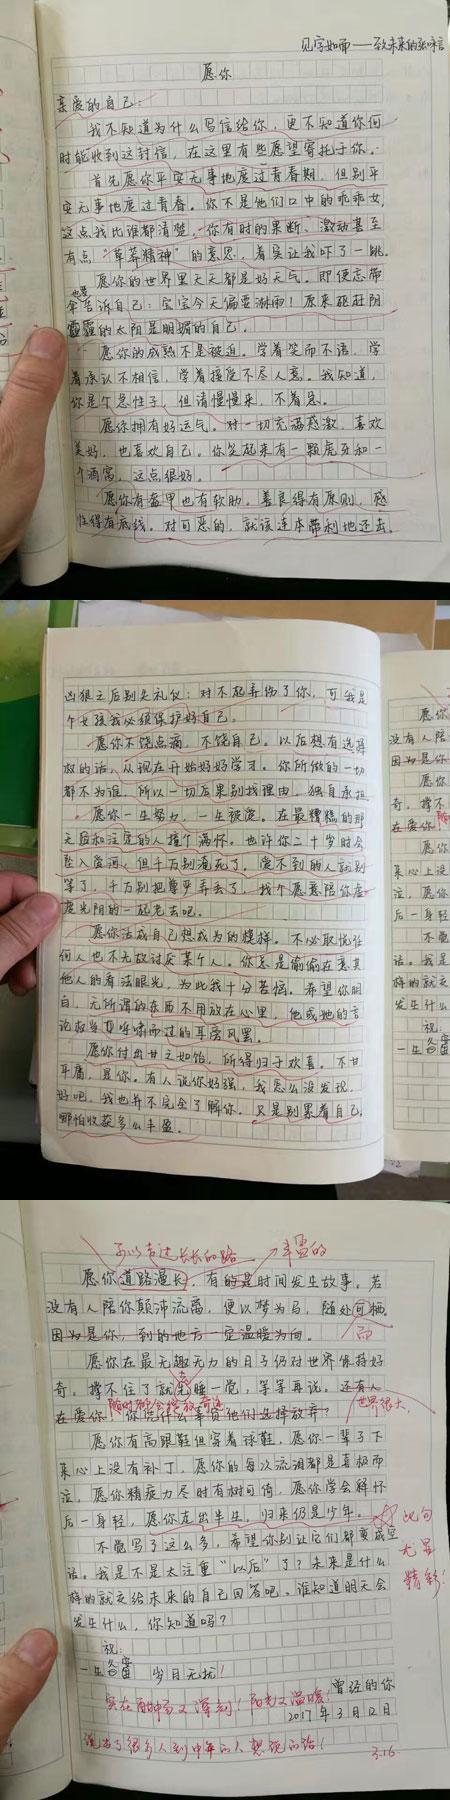 见字如面——致未来的
愿你
亲爱的自己:
我不知道为什么写信给你,更不知道你何
时能收到这封信,在这里有些愿望寄托于你。
首先愿你平安无事地度过青春期,但别平
安无事地度过青春。你不是他们口中的乖乖女,
这点我比谁都清楚,你有时的果断、激动甚至
有点“草莽精神”的意思,着实让我吓了一跳。
愿你的世界里天天都是好天气。即便忘带
伞也要告诉自己:宝宝今天偏要淋雨!原来碰赶阴
霾的太阳是明媚的自己。
愿你的成熟不是被迫。学着笑而不语,学
着承认不相信,学着接受不尽人意。我知道,
你是个急性子,但请慢慢来,不着急。
愿你拥有好运气。对一切充满感激,喜欢
美好,也喜欢自己。你笑起来有一颗虎牙和一
个酒窝,这点很好。
愿你有盔甲也有软肋。善良得有原则,感
性得有底线。对可恶的,就该连本带利地还击。
凶狠之后别失礼仪:对不起弄伤了你,可我是
个女孩我必须保护好自己。
愿你不饶点滴,不饶自己。以后想有选择
权的话,从现在开始好好学习。你所做的一切
都不为谁,所以一切后果别找理由,独自承担。
愿你一生努力,一生被爱。在最糟糕的那
天后和注定的人撞个满怀。也许你二十岁时会
坠入爱河,但千万别淹死了,爱不到的人就别
等了,千万别把尊严弄丢了,找个愿意陪你虚
度光阴的一起老去吧。
愿你活成自己想成为的模样。不必取悦任
何人也不无故讨厌某个人。你总是偷偷在意其
他人的看法眼光,为此我十分苦恼。希望你明
白,无所谓的东西不用放在心里,他或她的言
论权当夏日呼啸而过的耳旁风罢。
愿你付出甘之如饴,所得归于欢喜。不甘
平庸,是你。有人说你好强,我怎么没发现。
好吧,我也并不完全了解你。只是别累着自己,
哪怕收获多么丰盈。
可以走过长长的路 丰盈的
愿你道路漫长,有的是时间发生故事。若
没有人陪你颠沛流离,便以梦为马,随处可栖。
因为是你,到的地方一定温暖为向。 而
愿你在最无趣无力的日子仍对世界保持好
奇。撑不住了就先去睡一觉,等等再说。还有人
在爱你,你凭什么事负他们选择放弃? 世界很大,
随时都会绽放奇迹
愿你有高跟鞋但穿着球鞋,愿你一辈子下
来心上没有补丁,愿你的每次流泪都是喜极而
泣,愿你精疲力尽时有树可倚,愿你学会释怀
后一身轻,愿你走出半生,归来仍是少年。 此句
不觉写了这么多,希望你别让它们都变成空 尤显
话。我是不是太注重“以后”了?未来是什么 精彩!
样的就交给未来的自己回答吧。谁知道明天会
发生什么,你知道吗?
祝:
一生 岁月无扰!
曾经的你
实在 又深刻!阳光又温暖!
2017年3月12日
说出了很多人到中年的人想说的话!
3.16